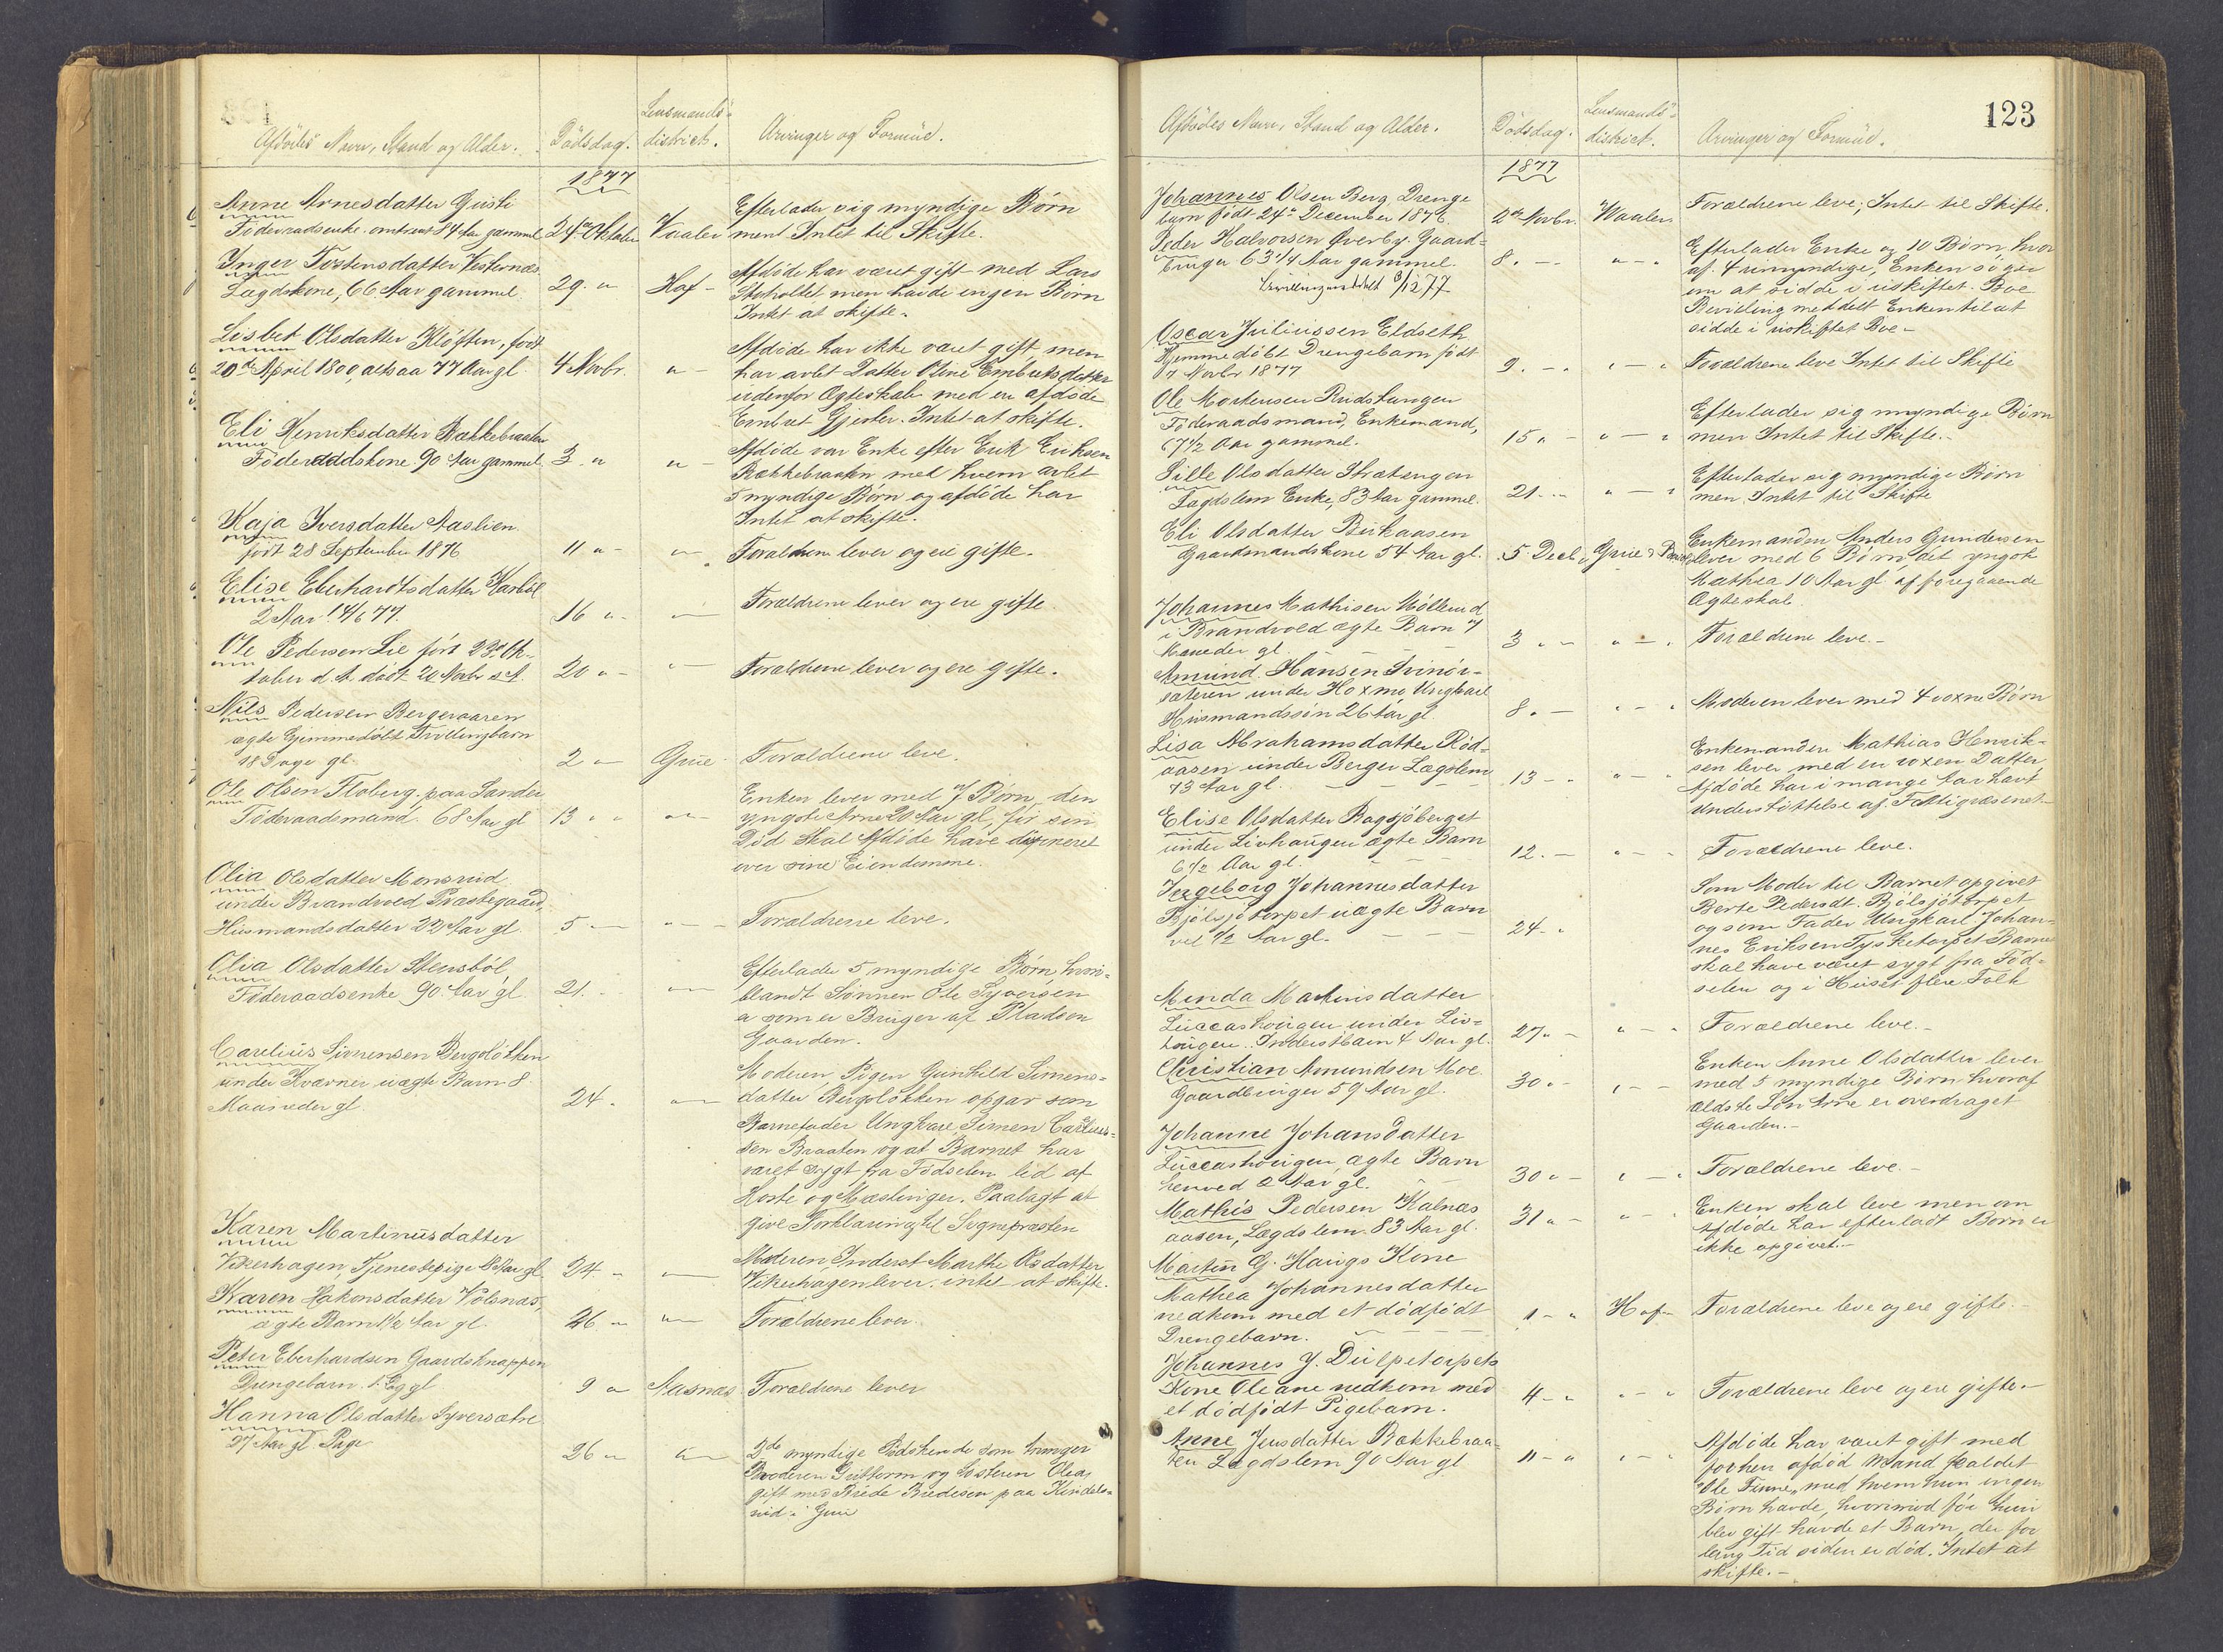 Afdödes Navn, Stand og Alder.
Dödsdag.
Lensmands-
district.
Arvinger og Formue.
1877
Anne Arnesdatter Gusti
Föderaadsenke omtrent 84 Aar gammel
24de Oktober
Vaaler
Efterlader sig myndige Börn
ment Intet til Skifte.
Inger Tostensdatter Vesternæs
Lægdskone, 66 Aar gammel
29. "
Hof -
Afdöde har været gift med Lars
men havde ingen Börn
Intet at skifte.
Lisbet Olsdatter Klöften, født
20de April 1800, altsaa 77 Aar gl.
4 Novbr.
" -
Afdöde har ikke været gift, men
har avlet Datter Oline Embretsdatter
udenfor Ægteskab med en afdöde
Embret Gjerder. Intet at skifte.
Eli Henriksdatter Bækkebraaten
Föderaadskone 90 Aar gammel
3. "
" -
Afdöde var Enke efter Erik Eriksen
Bækkebraaten med hvem avlet
5 myndige Börn og afdöde har
Intet at skifte.
Kaja Iversdatter Aaslien
født 28 September 1876
11 " -
" -
Forældrene lever og ere gifte.
Elise Eberhardtsdatter Karböl
2 Aar 14/6 77.
16 " -
" -
Forældrene lever og ere gifte.
Ole Pedersen Lie født 23de Ok-
tober d. A. dødt 20 Novbr s. A.
20 " -
" -
Forældrene lever og ere gifte.
Nils Pedersen Bergeraaren
ægte hjemmedöbt Tvillingbarn
18 Dage gl.
2 " -
Grue -
Forældrene leve.
Ole Olsen Floberg paa Sander
Föderaadsmand. 68 Aar gl
13 " "
" -
Enken lever med 7 Börn, den
yngste Arne 20 Aar gl, för sin
Död skal Afdöde have disponeret
over sine Eiendomme.
Olia Olsdatter Monsrud
under Brandvold Præstegaard,
Husmandsdatter 22 Aar gl.
5 " -
" - -
Forældrene leve.
Olia Olsdatter Stensböl,
Föderaadsenke 90 Aar gl
21. -
" -
Efterlader 5 myndige Börn hvori-
blandt Sönnen Ole Syversen
a som er Bruger af Pladsen
Gaarden.
Carelius Simensen Bergolökken
under Kværner uægte Barn 8
Maaneder gl
24. "
" -
Moderen Pigen Gunhild Simens-
datter Bergolökken opgav som
Barnefader Ungkarl Simen Carelius-
sen Braaten og at Barnet har
været sygt fra Födselen lid af
Hoste og Mæslinger. Paalagt at
give Forklaring til Sognepræsten
Karen Martinusdatter
Vikerhagen, Tjenestepige 18 Aar gl
24 -
" -
Moderen, Inderst Marthe Olsdatter
Vikerhagen lever. intet at skifte.
Karen Hakonsdatter Volsnæs,
ægte Barn 1/2 Aar gl.
26. "
" -
Forældrene lever.
Peter Eberhardsen Gaardsknappen
Drengebarn. 1 Dag gl
9 "
Aasnæs
Forældrene lever
Hanna Olsdatter Syversætre
27 Aar gl Pige
26 "
" -
2de myndige Södskende som Arvinger
Broderen Guttorm og Sösteren Olea
gift med Brede Bredesen paa Kindals-
rud i Grue
123
Afdödes Navn, Stand og Alder.
Dödsdag.
Lensmands-
district.
Arvinger og Formue.
1877
Johannes Olsen Berg, Drenge
barn født 24de December 1876
2de Novbr.
Waaler
Forældrene leve; Intet til Skifte.
Peder Halvorsen Øverby. Gaard-
bruger 63 1/4 Aar gammel.
8. -
" - "
Efterlader Enke og 10 Börn, hvor
af 4 umyndige, Enken söger
om at sidde i uskiftet Boe
Bevilling meddelt Enken til at
sidde i uskiftet Boe -
Bevilling meddelt 3/12 77
Oscar Juliussen Eldseth
Hjemmedöbt Drengebarn född
7 Novbr 1877
9. - "
" - "
Forældrene leve Intet til Skifte
Ole Mortensen Rudstungen
Föderaadsmand, Enkemand,
67 1/2 Aar gammel.
15 " -
" - "
Efterlader sig myndige Börn
men Intet til Skifte.-
Sille Olsdatter Strætengen
Lægdslem Enke, 83 Aar gammel.
21. -
" - "
Efterlader sig myndige Börn
men Intet til Skifte
Eli Olsdatter Birkaasen
Gaardmandskone 54 Aar gl.
5 Decbr
Grue
Enkemanden Anders Gundersen
lever med 6 Börn, det yngste
Mathea 10 Aar gl af foregaaende
Ægteskab.
Johannes Mathisen Möllerud
i Brandvold ægte Barn 7
Maaneder gl.
3 " -
" - "
Forældrene leve.-
Amund Hansen Tvinör-
sæteren under Hoxmo Ungkarl
Husmandssön 26 Aar gl
8. -
" - "
Moderen lever med 4 voxne Börn
Lisa Abrahamsdatter Röd-
aasen under Berger Lægdslem
73 Aar gl.
13 - "
" - "
Enkemanden Mathias Henrik-
sen lever med en voxen Datter
Afdöde har i mange Aar havt
Understöttelse af Fattigvæsenet -
Elise Olsdatter Bagsjöberget
under Livhaugen ægte Barn
6 1/2 Aar gl.
12. -
" - -
Forældrene leve.
Ingeborg Johannesdatter
Bjölsjötorpet uægte Barn
vel 1/2 Aar gl.
24 - "
Som Moder til Barnet opgivet
Berte Pedersdt. Bjölsjötorpet
og som Fader Ungkarl Johan-
nes Eriksen Tysketorpet Barnet
skal have været sygt fra Föd-
selen og i Huset flere Folk
Minda Martinsdatter
Luccashougen under Liv-
hougen. Inderstbarn 4 Aar gl.
27 " -
" - -
Forældrene leve.-
Christian Amundsen Moe
Gaardbruger 59 Aar gl.
30 " -
" - -
Enken Anne Olsdatter lever
med 5 myndige Börn hvoraf
ældste Sön Arne er overdraget
Gaarden.-
Johanne Johansdatter
Luccashougen, ægte Barn
henved 2 Aar gl.
30 " -
" - "
Forældrene leve.-
Mathis Pedersen Kalnæs
aasen, Lægdslem 83 Aar gl.
31 " -
" - "
Enken skal leve men om
Afdöde har efterladt Börn er
ikke opgivet.-
Martin G. Haugs Kone
Mathea Johannesdatter
nedkom med et dödfödt
Drengebarn.
1 - "
Hof -
Forældrene leve og ere gifte.-
Johannes J. Dulpetorpets
Kone Oleane nedkom med
et dödfödt Pigebarn.
4 - "
" - "
Forældrene leve og ere gifte.-
Anne Jensdatter Bækkebraa-
ten Lægdslem 90 Aar gl
11 - "
" - "
Afdöde har været gift med
forhen afdöd Mand kaldet
"Ole Finne", med hvem hun ingen
Börn havde, hvorimod för hun
blev gift havde et Barn, der for
lang Tid siden er död. Intet at
skifte.-